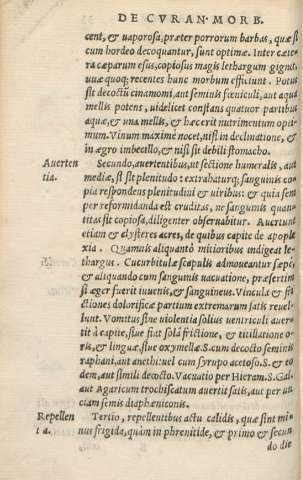 DE CVRAN. MORB.
cent, & uaporosa, præter porrorum barbas, quæ si
cum hordeo decoquantur, sunt optimæ. Inter cæte
ra cæparum esus, copiosus magis lethargum gignit:
uuæ quoq; recentes hunc morbum efficiunt. Potus
sit decoctũ cinamomi, aut seminis fœniculi, aut aqua
mellis potens, uidelicet constans quatuor partibus
aquæ, & una mellis, & hæc erit nutrimentum opti-
mum. Vinum maximè nocet, nisi in declinatione, &
in ægro imbecillo, & nisi sit debili stomacho.
Auerten
tia.
Secundò, auertentibus, ut sectione humeralis, aut
mediæ, si sit plenitudo: extrahaturq; sanguinis co-
pia respondens plenitudini & uiribus: & quia sem
per reformidanda est cruditas, ne sanguinis quan-
titas sit copiosa, diligenter obseruabitur. Auertunt
etiam & clysteres acres, de quibus capite de apople
xia. Quamuis aliquantò mitioribus indigeat le-
thargus. Cucurbitulæ scapulis admoueantur sæpè,
& aliquando cum sanguinis uacuatione, præsertim
si æger fuerit iuuenis, & sanguineus. Vincula & fri
ctiones dolorificæ partium extremarum satis reuel-
lunt. Vomitus sine uiolentia solius uentriculi auer-
tit à capite, siue fiat sola frictione, & titillatione o-
ris, & linguæ, siue oxymellæ. S. cum decocto seminis
raphani, aut anethi: uel cum syrupo acetoso. S. & eo
dem, aut simili decocto. Vacuatio per Hieram. S. Gal.
aut Agaricum trochiscatum auertit satis, aut per un
ciam semis diaphœniconis.
Repellen
tia.
Tertio, repellentibus actu calidis, quæ sint mi-
nus frigida, quàm in phrenitide, & primo & secun
do die